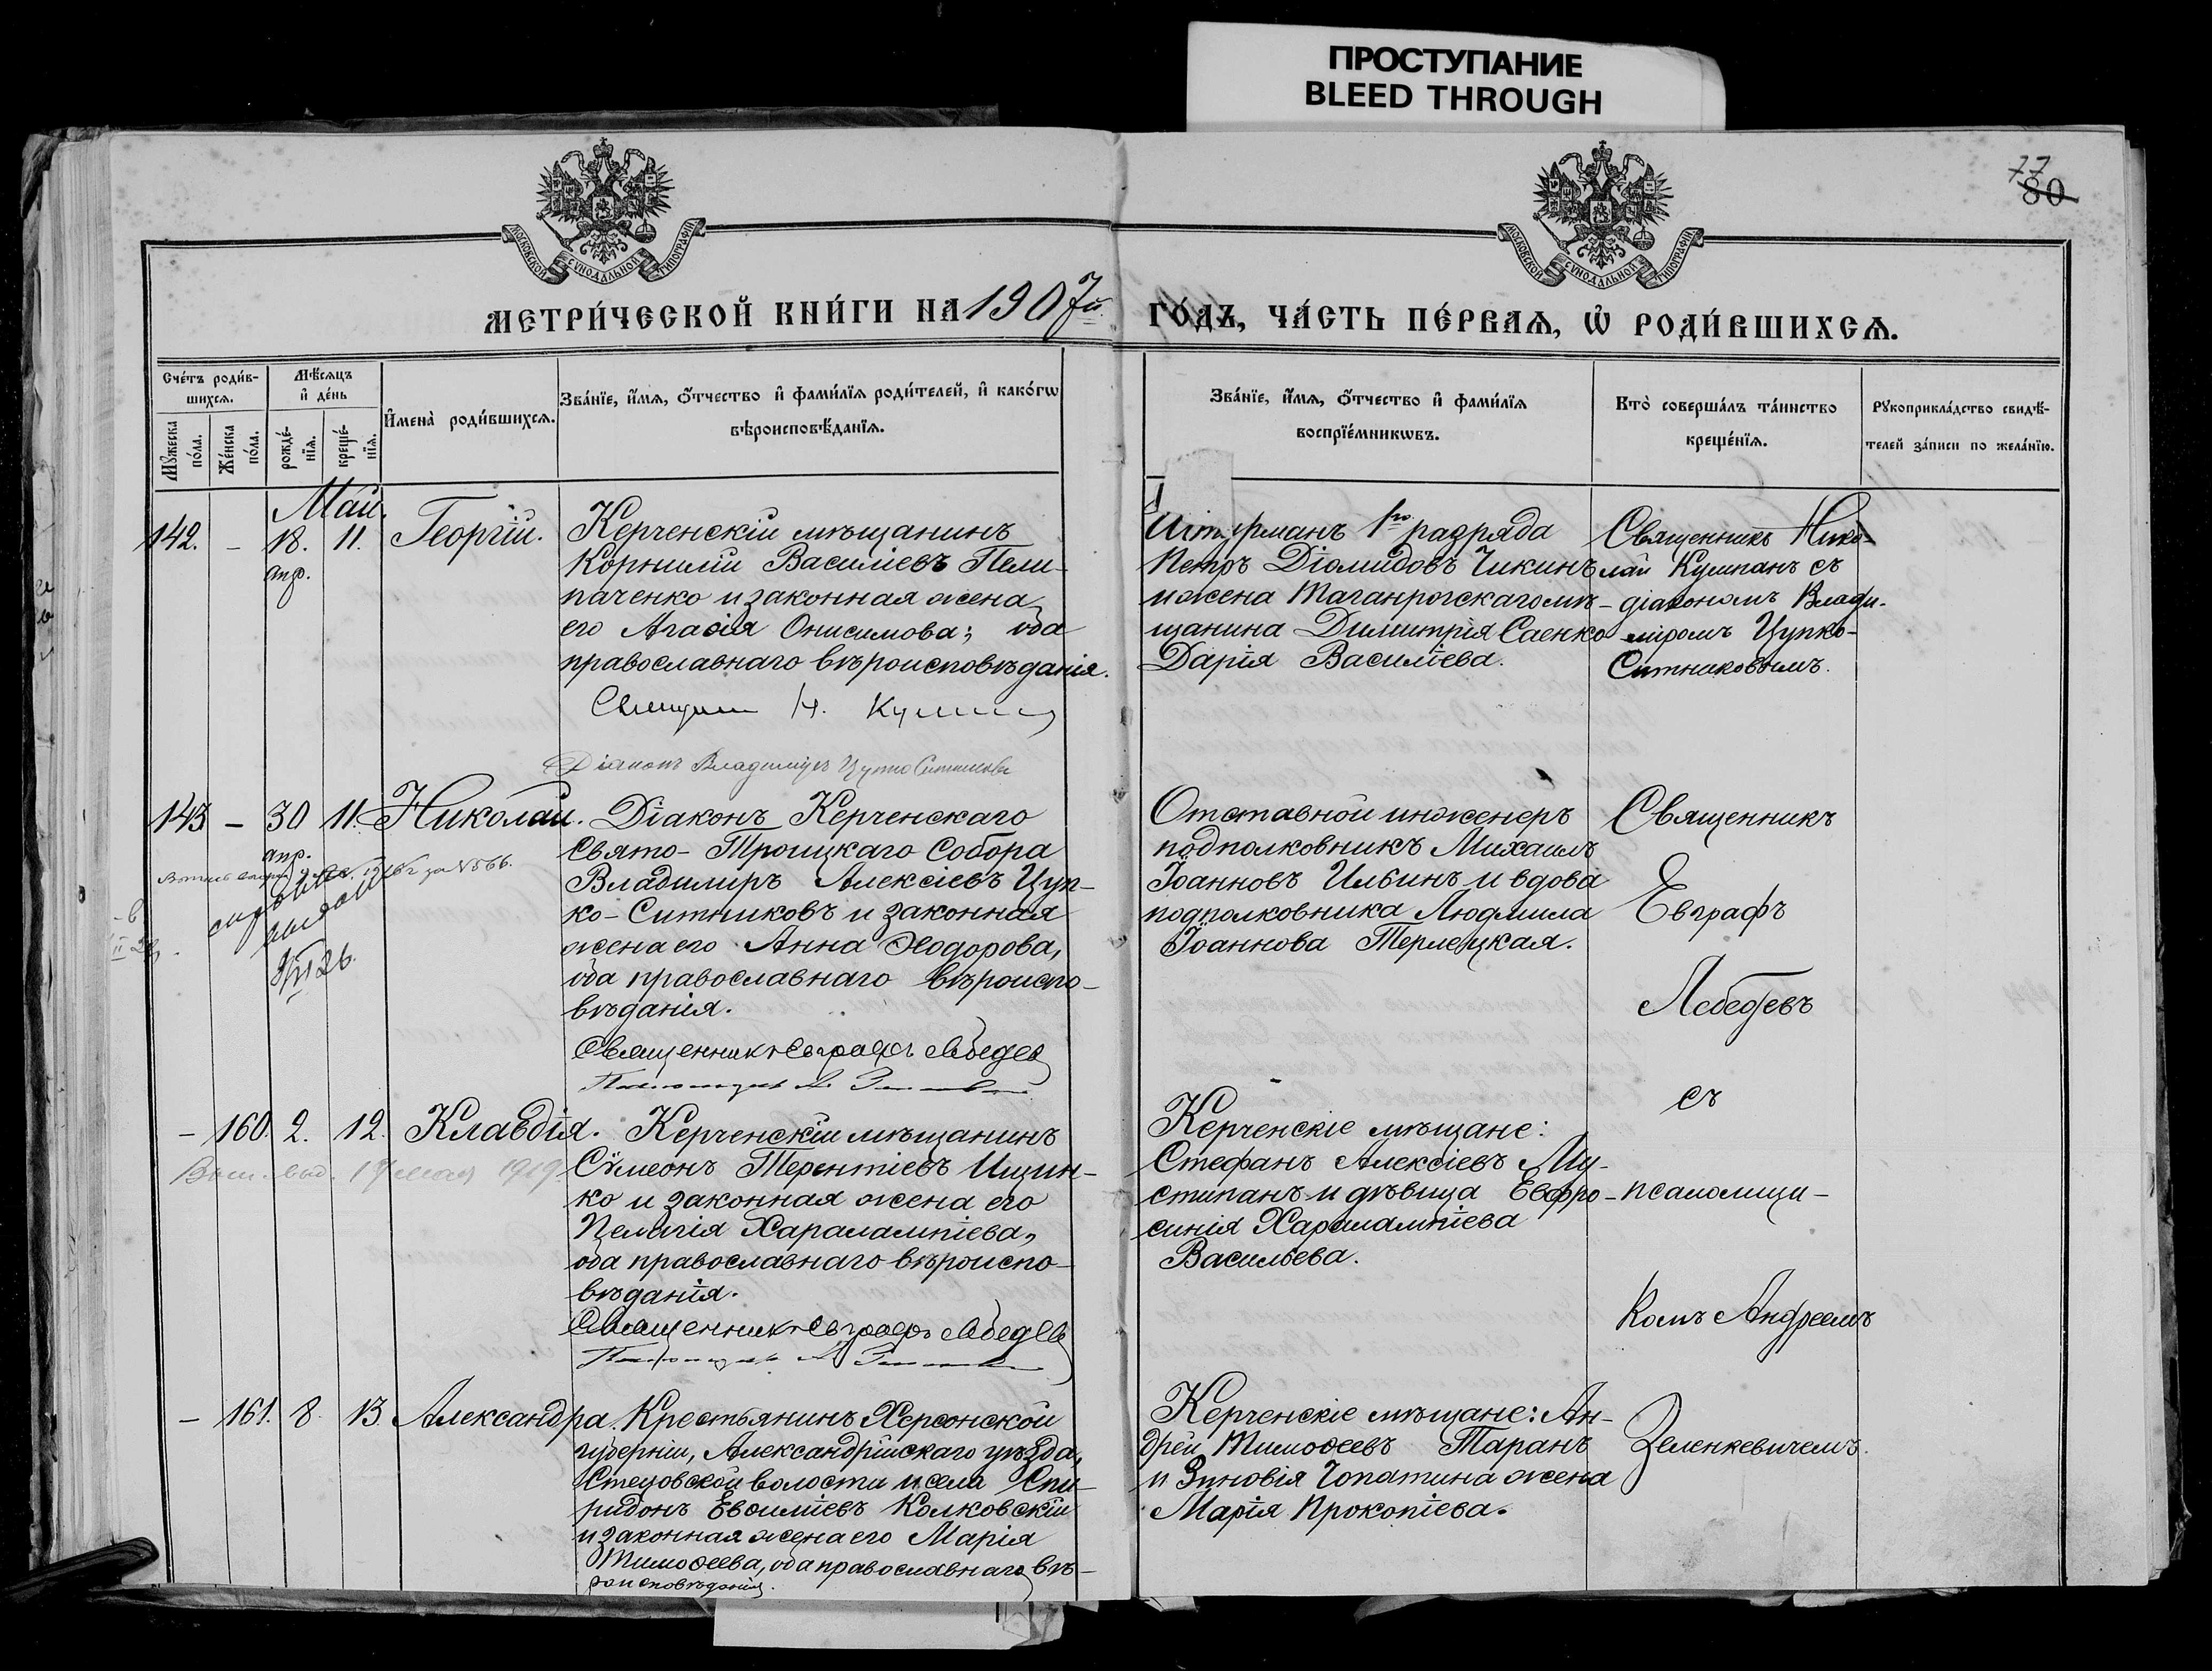 ПРОСТУПАНИЕ
BLEED THROUGH
77
80
МОСКОВСКОЙ СѴНОДАЛЬНОЙ ТИПОГРАФІИ
МОСКОВСКОЙ СѴНОДАЛЬНОЙ ТИПОГРАФІИ
МЕТРИ́ЧЕСКОЙ КНИ́ГИ НА 1907й ГО́ДЪ, ЧА́СТЬ ПЕ́РВАѦ, Ѡ҆ РОДИ́ВШИХСѦ.
Сче́тъ роди́в-
шихсѧ.
Мꙋ́жеска по́ла.
Же́нска по́ла.
Мѣ́сѧцъ
и҆ де́нь
рожде́-
нїѧ.
креще́-
нїѧ.
И҆мена̀ роди́вшихсѧ.
Зва́нїе, и҆́мѧ, ѻ҆́тчество и҆ фами́лїѧ роди́телей, и҆ како́гѡ
вѣроисповѣ́данїѧ.
Зва́нїе, и҆́мѧ, ѻ҆́тчество и҆ фами́лїѧ
воспрїе́мникѡвъ.
Кто̀ соверша́лъ та́инство
креще́нїѧ.
Рꙋкоприкла́дство свидѣ́-
телей за́писи по жела́нїю.
Май.
142. - 18. 11. Георгій.
апр.
Керченскій мѣщанинъ
Корнилій Василіевъ Пели-
паченко и законная жена
его Агаѳія Онисимова; оба
православнаго вѣроисповѣданія.
Штурманъ 1го разряда
Петръ Діомидовъ Чикинъ
и жена Таганрогскаго мѣ-
щанина Димитрія Саенко
Дарія Василіева.
Священникъ Нико-
лай Кушпанъ съ
діакономъ Влади-
міромъ Цупко-
Ситниковымъ.
Н.
Діаконъ Владиміръ Цупко Ситниковъ
143 - 30 11. Николай.
апр.
за № 566.
Діаконъ Керченскаго
Свято-Троицкаго Собора
Владимиръ Алексіевъ Цуп-
ко-Ситниковъ и законная
жена его Анна Ѳеодорова,
оба православнаго вѣроиспо-
вѣданія.
Священникъ Евграфъ Лебедев
Отставной инженеръ
подполковникъ Михаилъ
Іоанновъ Ильинъ и вдова
подполковника Людмила
Іоаннова Терлецкая.
Священникъ
Евграфъ
Лебедевъ
съ
псаломщи-
комъ Андреемъ
Зеленкевичемъ.
- 160. 2. 12. Клавдія.
мая 1919
Керченскій мѣщанинъ
Сѵмеонъ Терентіевъ Ищен-
ко и законная жена его
Пелагія Харалампіева,
оба православнаго вѣроиспо-
вѣданія.
Священникъ Евграфъ Лебедев
Керченскіе мѣщане:
Стефанъ Алексіевъ Му-
стипанъ и дѣвица Евфро-
синія Харалампіева
Васильева.
- 161. 8. 13. Александра.
Крестьянинъ Херсонской
губерніи, Александрійскаго уѣзда,
Стецовской волости и села Спи-
ридонъ Евѳиміевъ Колковскій
и законная жена его Марія
Тимоѳеева, оба православнаго вѣ-
роисповѣданія.
Керченскіе мѣщане: Ан-
дрей Тимоѳеевъ Таранъ
и Зиновія Чопатина жена
Марія Прокопіева.